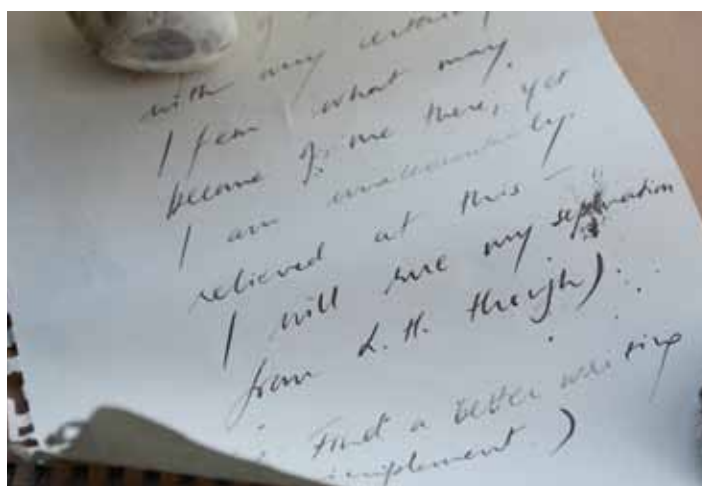 with any certainty
I fear what may
become of me there, yet
I am unaccountably
relieved at this —
I will rue my separation
from L. H. though).
Find a better writing
implement.)